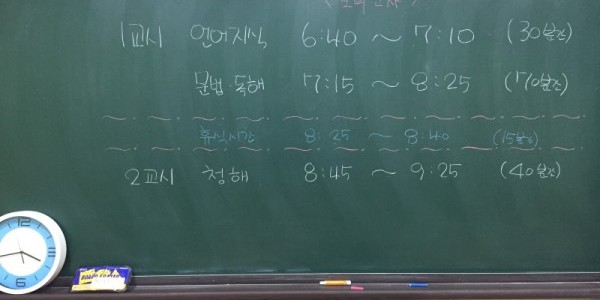 1교시 언어지식 6:40 ~ 7:10 (30분간)
문법·독해 7:15 ~ 8:25 (70분간)
휴식시간 8:25 ~ 8:40 (15분간)
2교시 청해 8:45 ~ 9:25 (40분간)
12
3
6
9